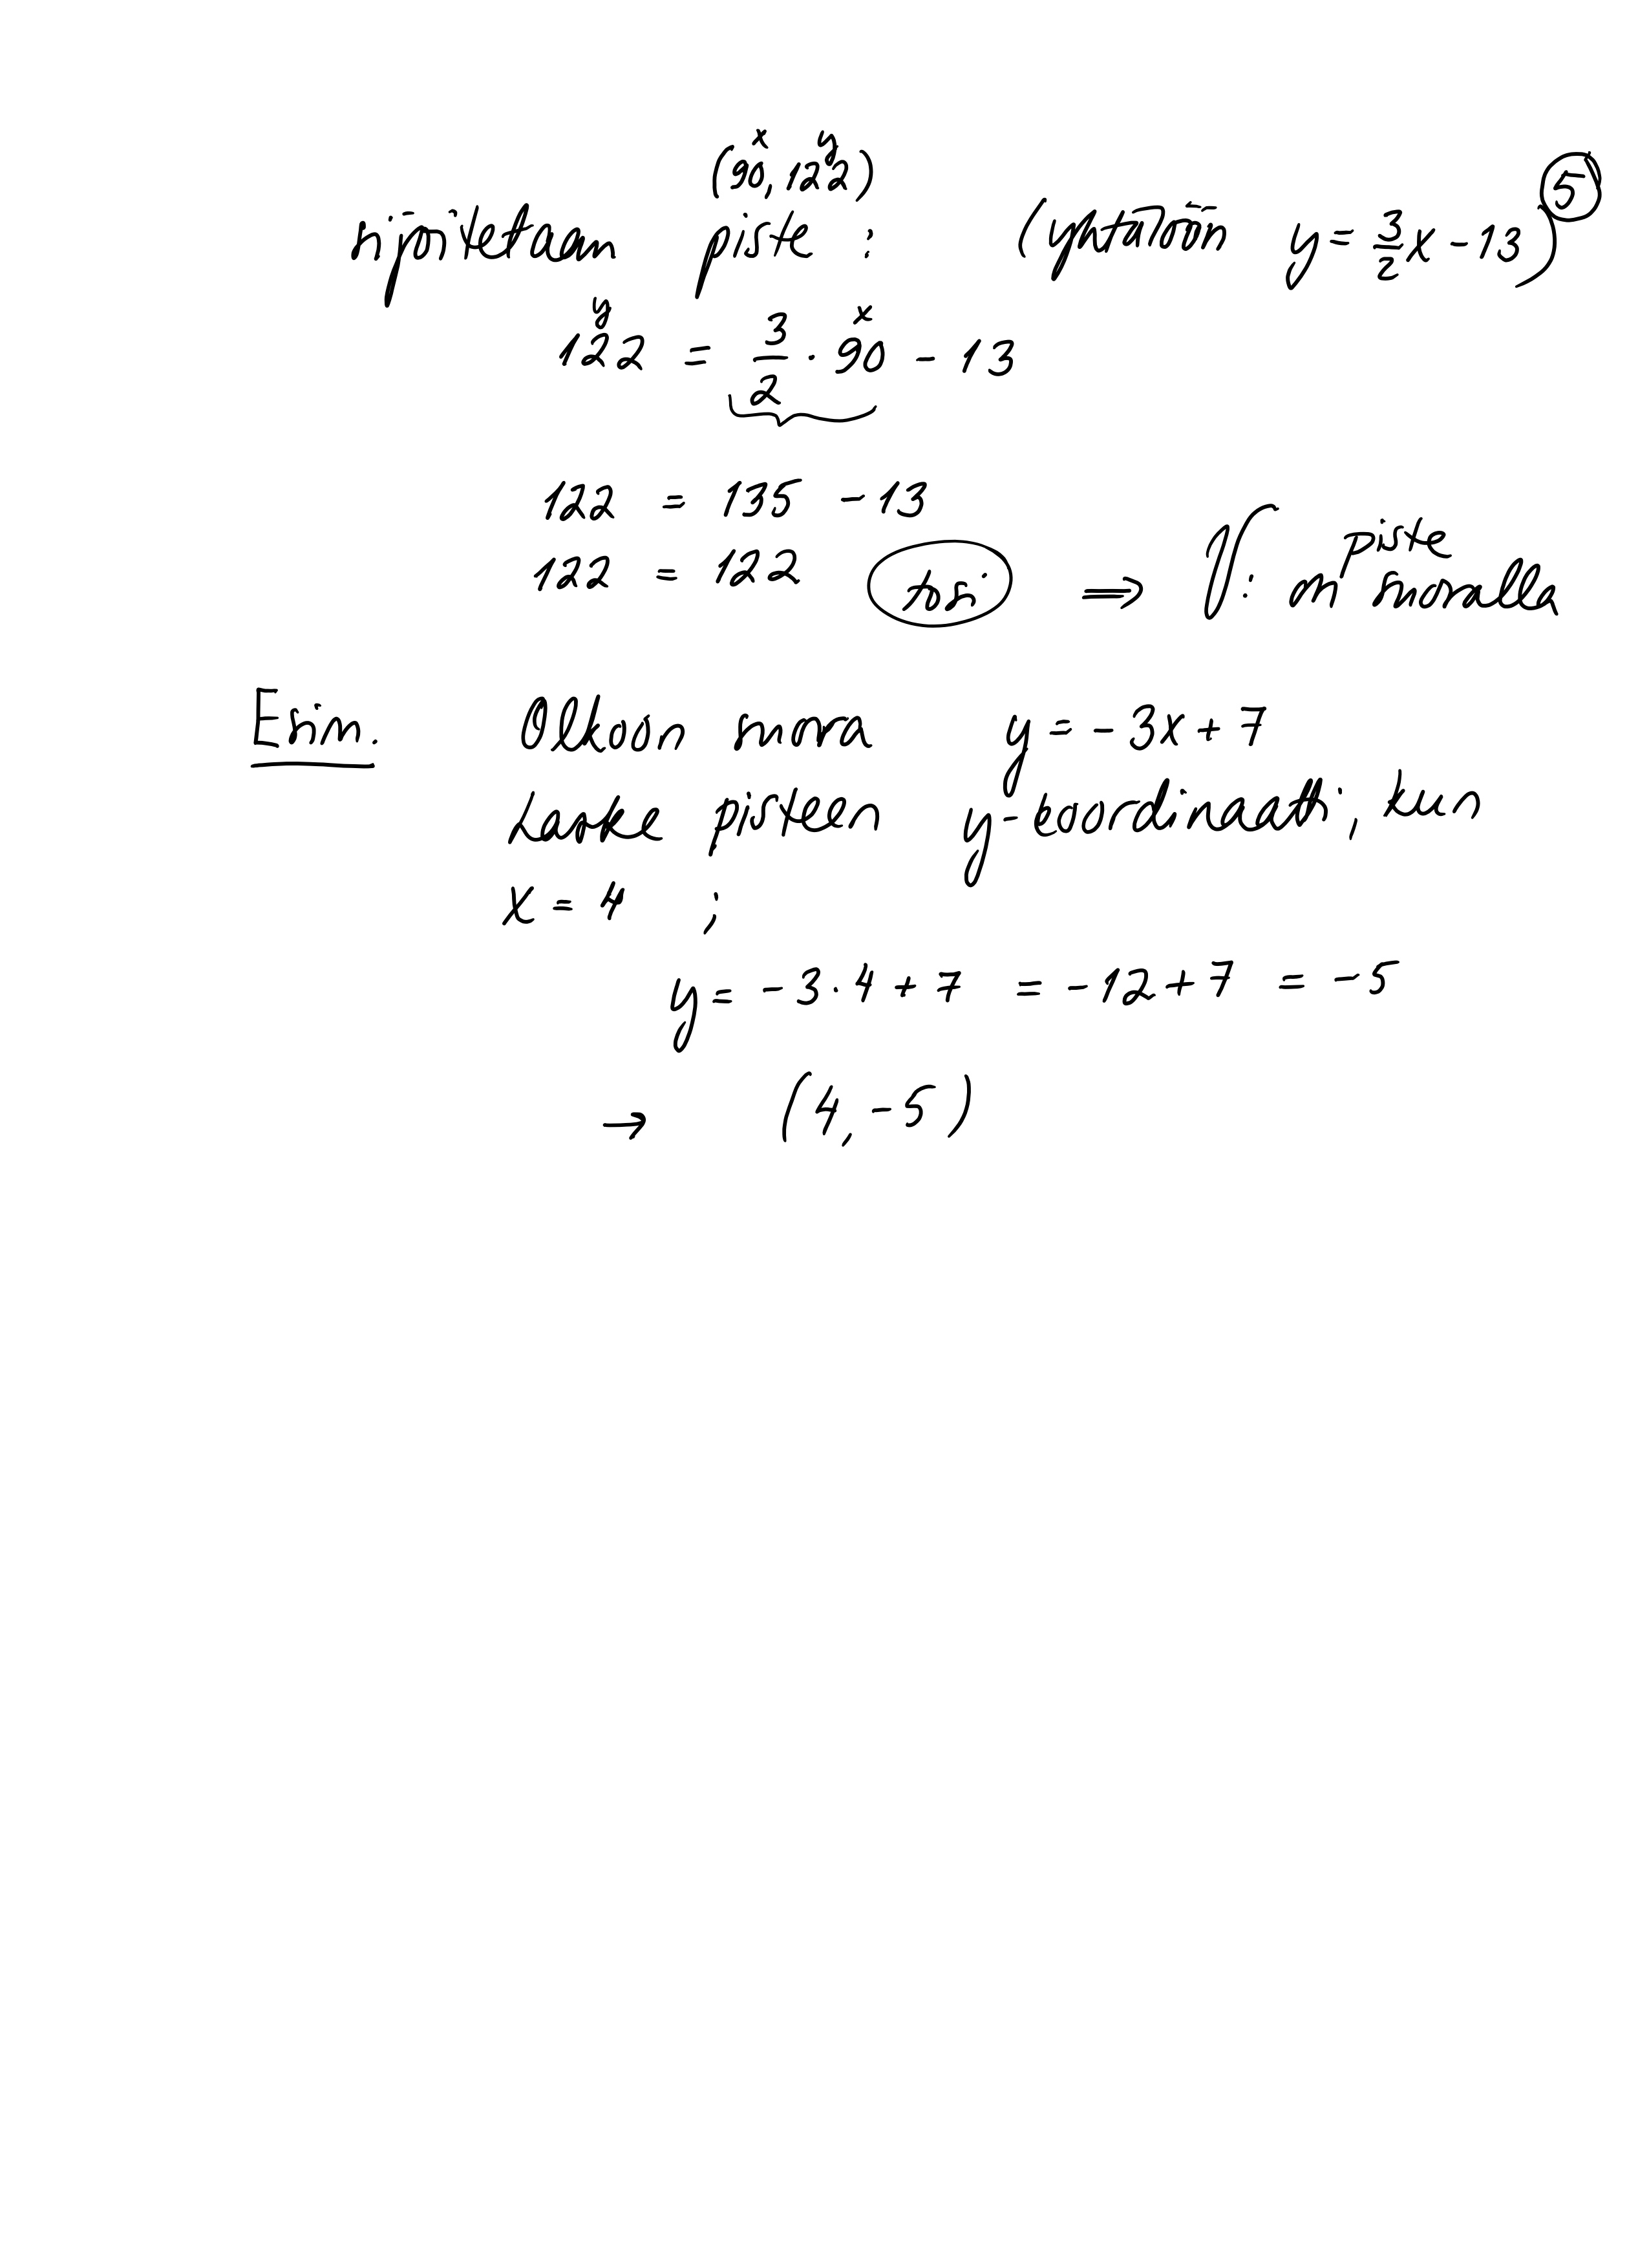 (90, 122)
x y
5
sijoitetaan piste : (yhtälöön y = 3/2 x - 13)
y x
122 = 3/2 · 90 - 13
122 = 135 - 13
122 = 122 tosi ⇒ V: piste on suoralla
Esim. Olkoon suora y = -3x + 7
Laske pisteen y-koordinaatti, kun
x = 4 ;
y = -3 · 4 + 7 = -12 + 7 = -5
→ (4, -5)